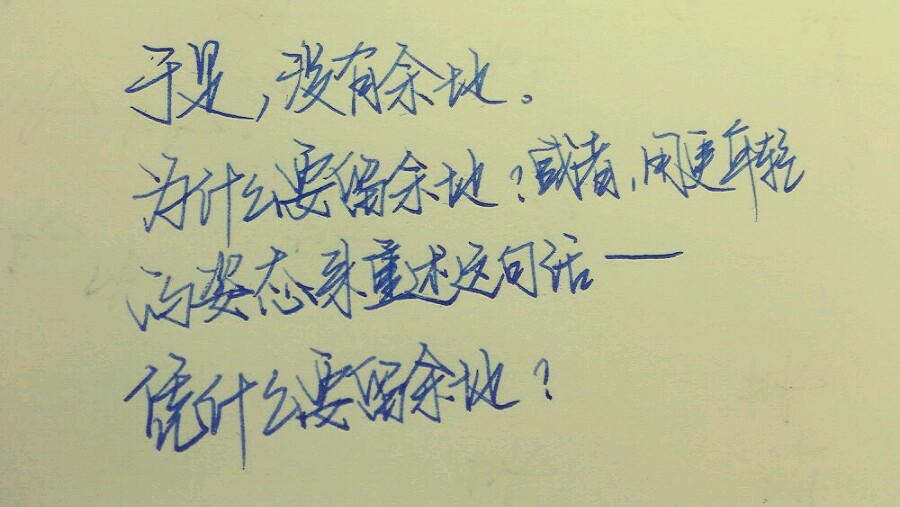 于是，没有余地。
为什么要留余地？或者，用更年轻
的姿态来重述这句话——
凭什么要留余地？